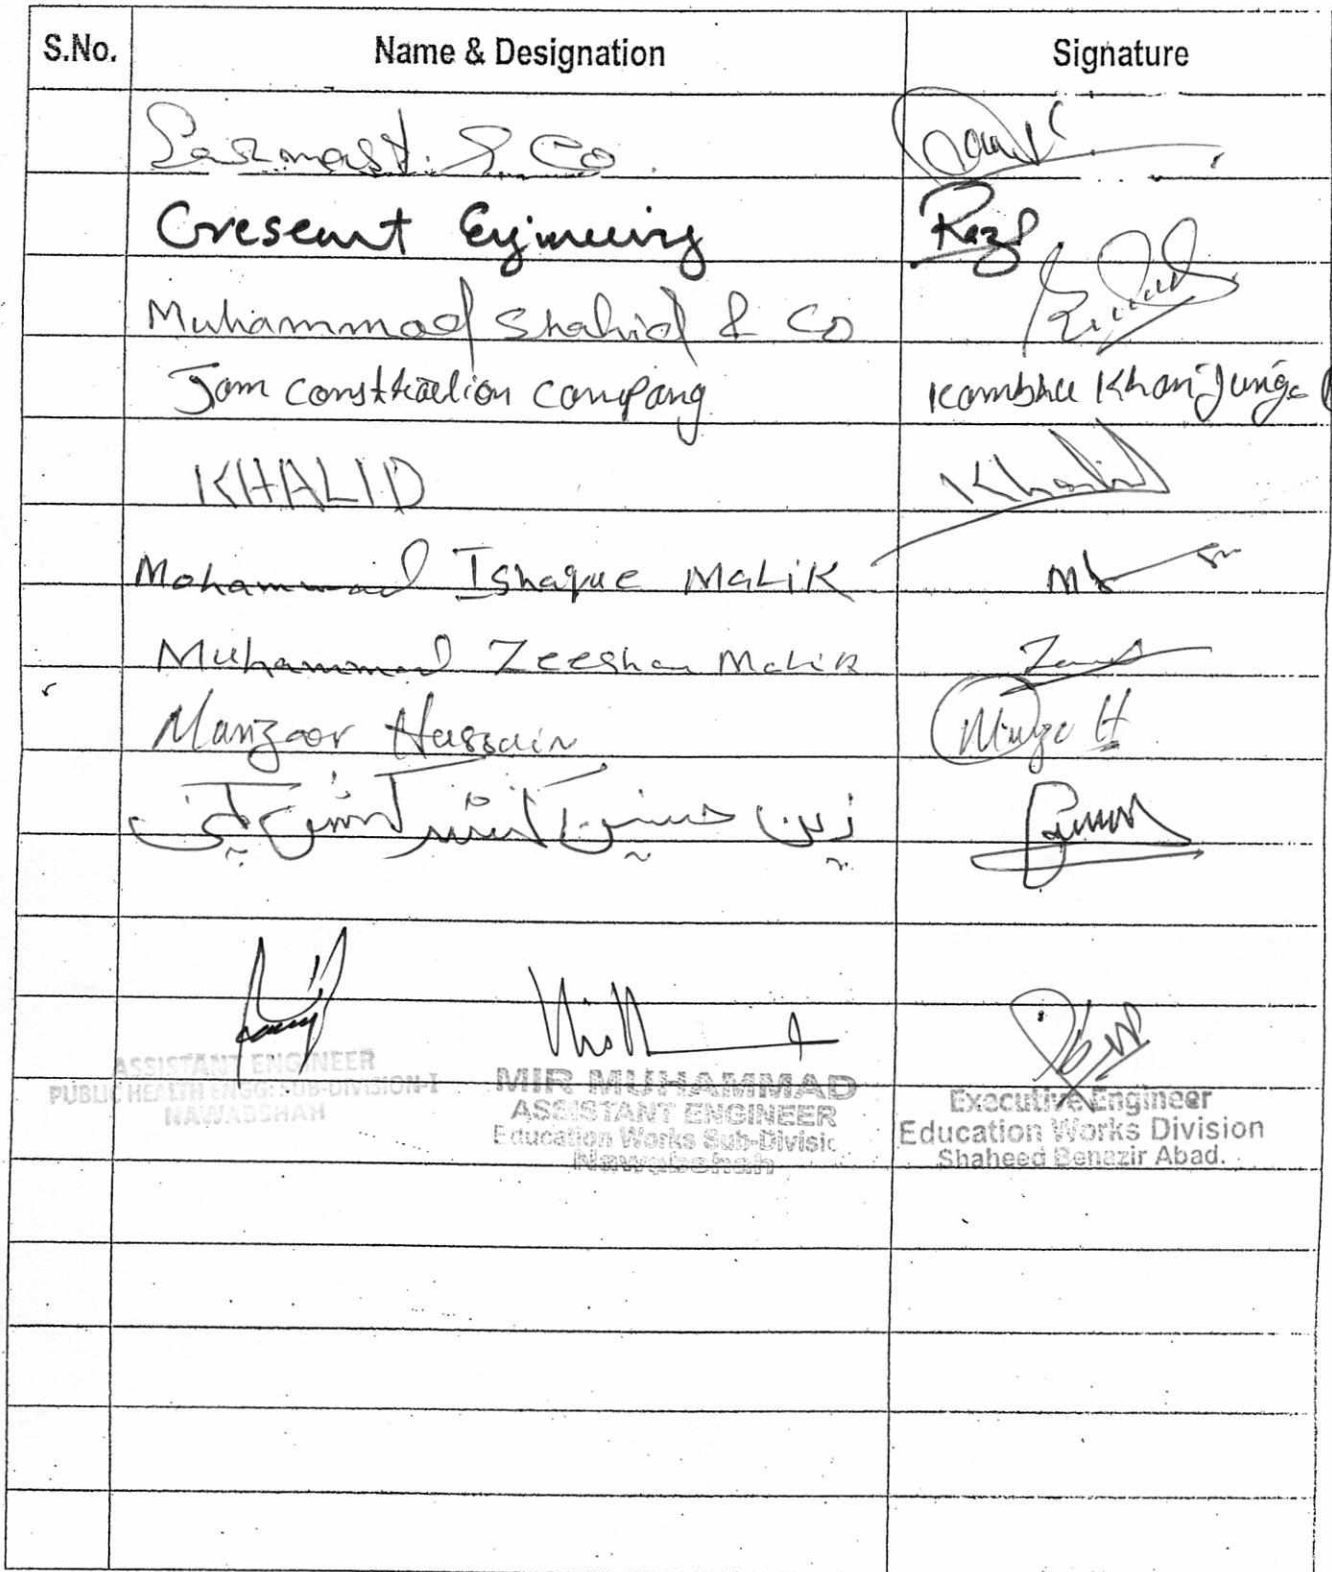 S.No. Name & Designation Signature
Sarmast & Co
Cresent Enjineering Raz
Muhammad Shahid & Co
Jam consttraction company Kambhu Khan Junejo
KHALID Khalid
Mohammad Ishaque Malik
Muhammad Zeeshan Malik
Manzoor Hussain
زين حسين ڪنسٽرڪشن ڪمپني
ASSISTANT ENGINEER
PUBLIC HEALTH ENGG: SUB-DIVISION-I
NAWABSHAH
MIR MUHAMMAD
ASSISTANT ENGINEER
Education Works Sub-Divisic
Nawabshah
Executive Engineer
Education Works Division
Shaheed Benazir Abad.